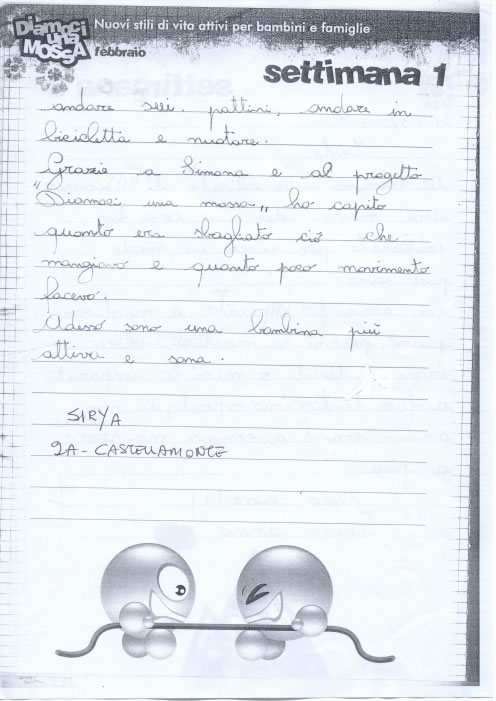 Diamoci
una
mossa
Nuovi stili di vita attivi per bambini e famiglie
febbraio
settimana 1
andare sui pattini, andare in
bicicletta e nuotare.
Grazie a Simona e al progetto
"Diamoci una mossa" ho capito
quanto era sbagliato ciò che
mangiavo e quanto poco movimento
facevo.
Adesso sono una bambina più
attiva e sana.
SIRYA
2A - CASTELLAMONTE